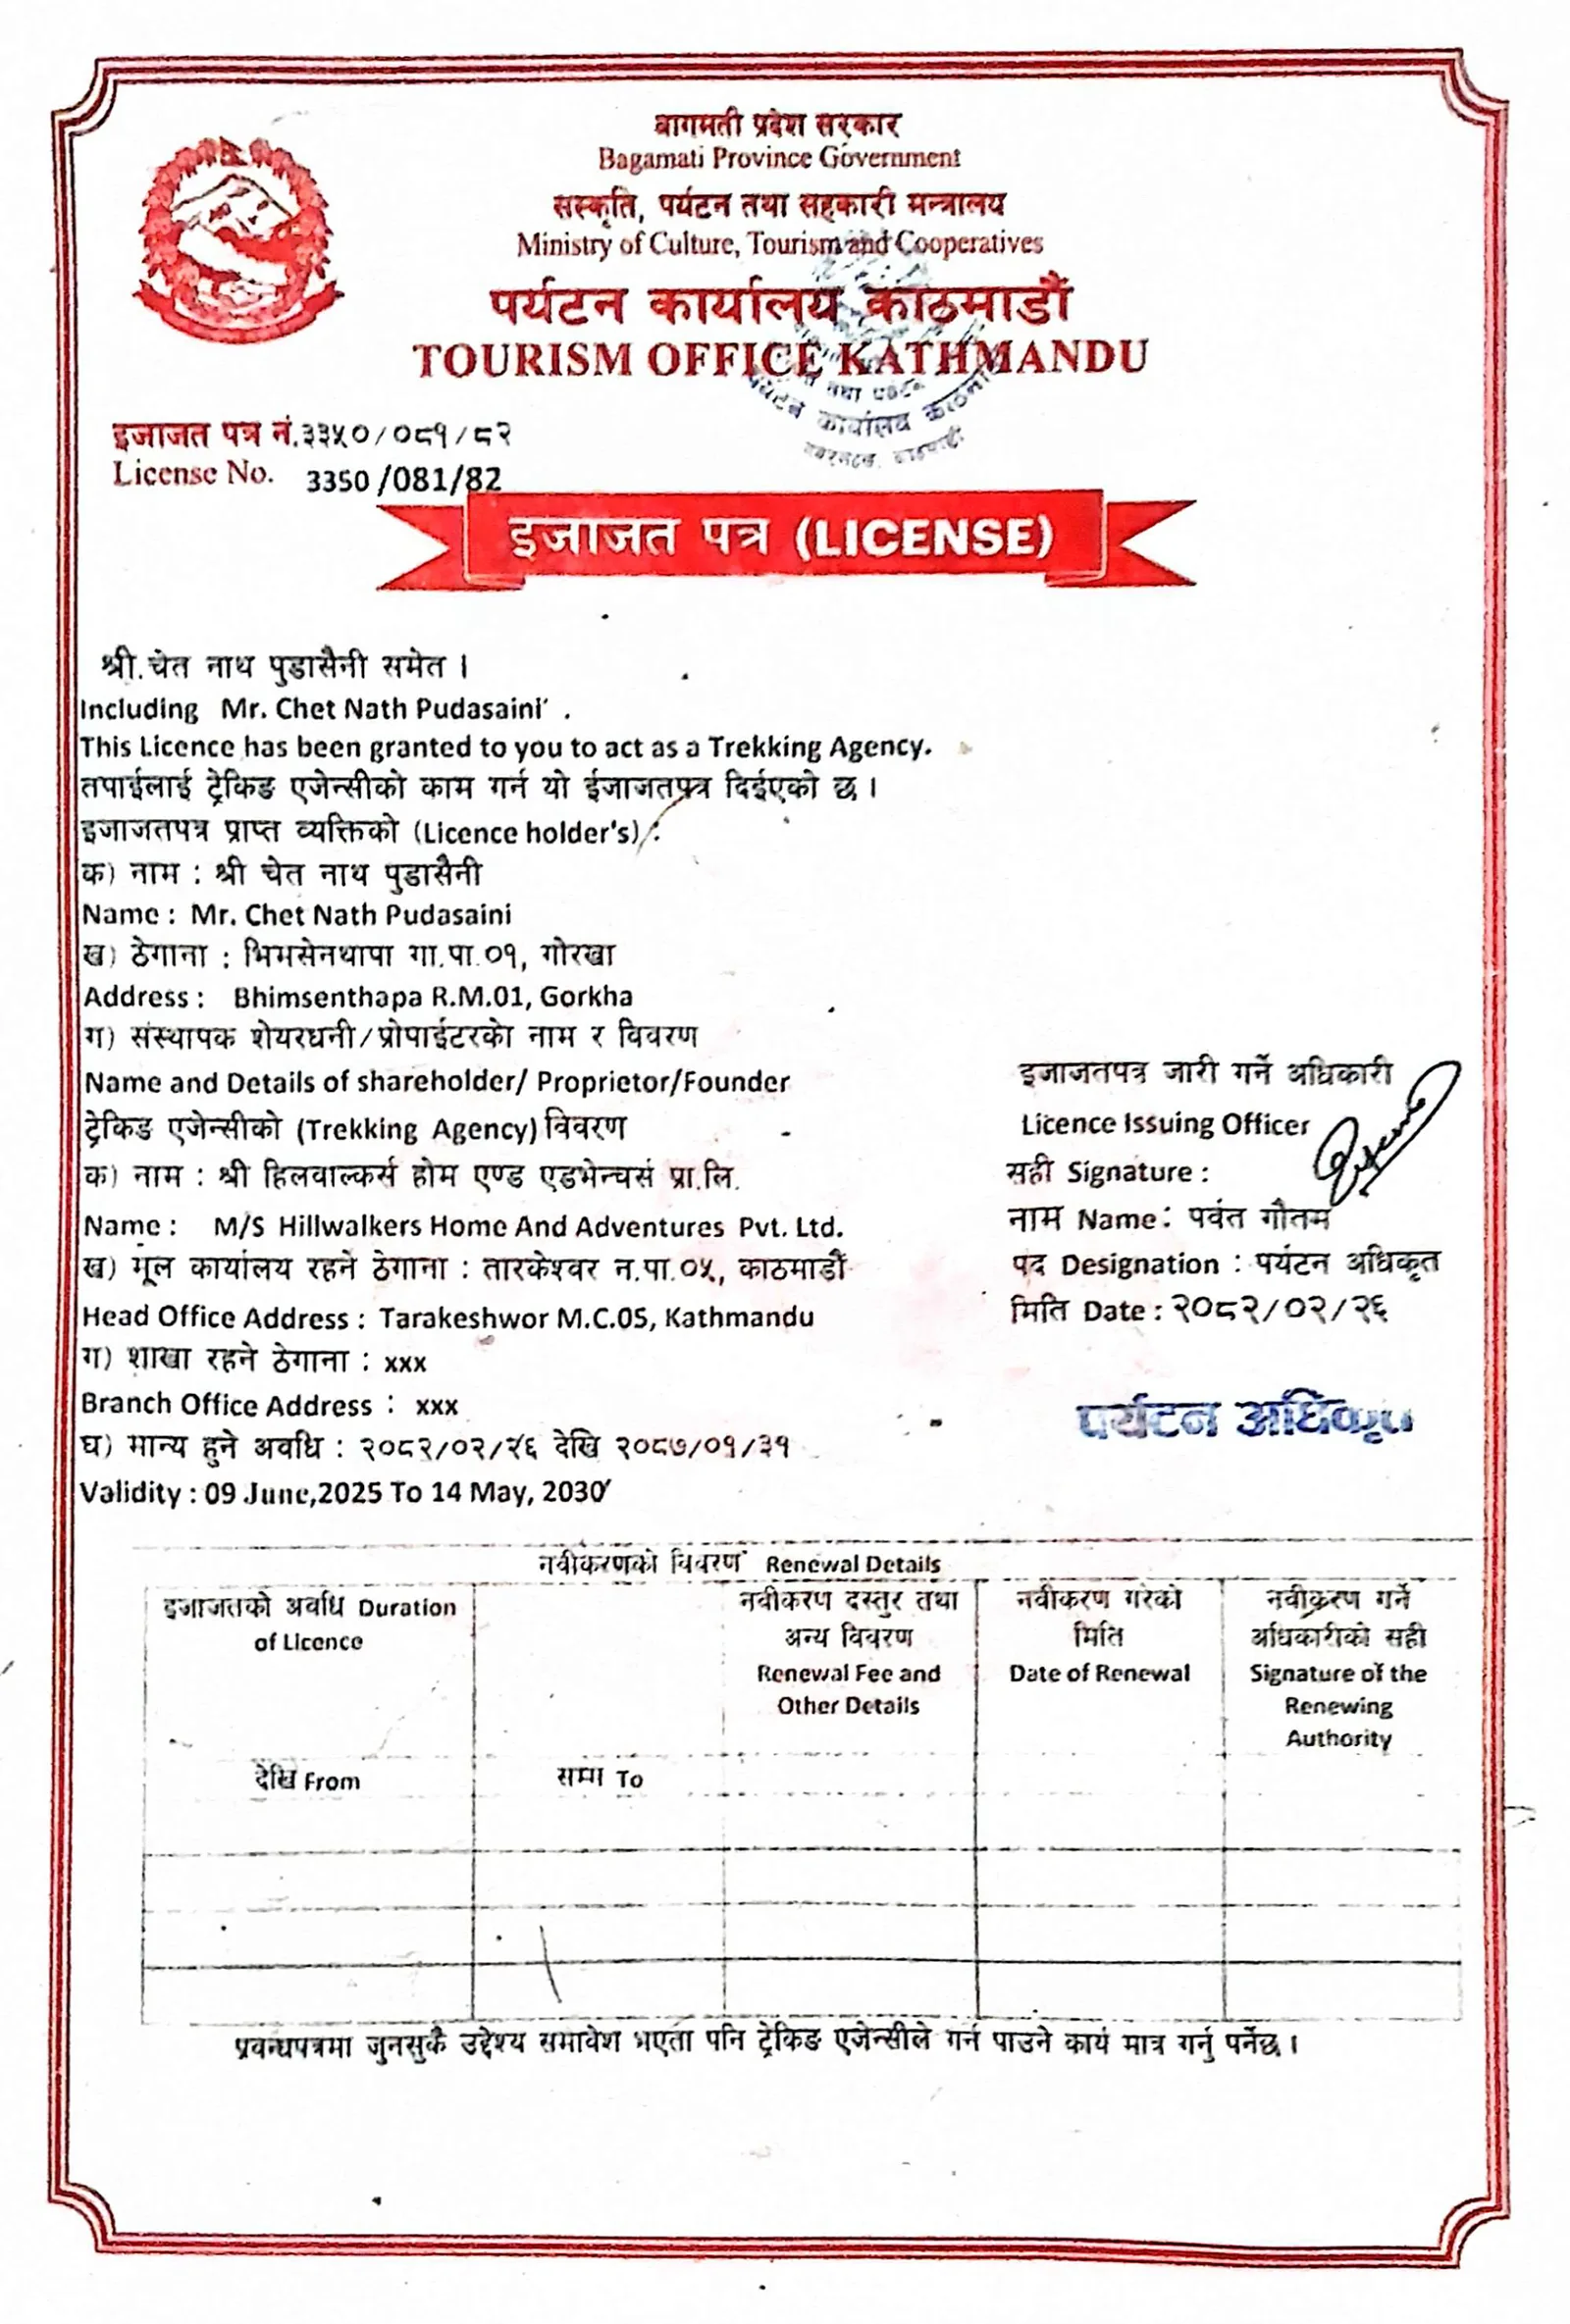 बागमती प्रदेश सरकार
Bagamati Province Government
संस्कृति, पर्यटन तथा सहकारी मन्त्रालय
Ministry of Culture, Tourism and Cooperatives
पर्यटन कार्यालय काठमाडौं
TOURISM OFFICE KATHMANDU
तथा
पर्यटन कार्यालय
इजाजत पत्र नं.३३५०/०८१/८२
License No. 3350/081/82
इजाजत पत्र (LICENSE)
श्री.चेत नाथ पुडासैनी समेत ।
Including Mr. Chet Nath Pudasaini .
This Licence has been granted to you to act as a Trekking Agency.
तपाईलाई ट्रेकिङ एजेन्सीको काम गर्न यो ईजाजतपत्र दिईएको छ ।
इजाजतपत्र प्राप्त व्यक्तिको (Licence holder's) :
क) नाम : श्री चेत नाथ पुडासैनी
Name : Mr. Chet Nath Pudasaini
ख) ठेगाना : भिमसेनथापा गा.पा.०१, गोरखा
Address : Bhimsenthapa R.M.01, Gorkha
ग) संस्थापक शेयरधनी/प्रोपाईटरको नाम र विवरण
Name and Details of shareholder/ Proprietor/Founder
ट्रेकिङ एजेन्सीको (Trekking Agency) विवरण
क) नाम : श्री हिलवाल्कर्स होम एण्ड एडभेन्चर्स प्रा.लि.
Name : M/S Hillwalkers Home And Adventures Pvt. Ltd.
ख) मूल कार्यालय रहने ठेगाना : तारकेश्वर न.पा.०५, काठमाडौं
Head Office Address : Tarakeshwor M.C.05, Kathmandu
ग) शाखा रहने ठेगाना : xxx
Branch Office Address : xxx
घ) मान्य हुने अवधि : २०८२/०२/२६ देखि २०८७/०१/३१
Validity : 09 June,2025 To 14 May, 2030
इजाजतपत्र जारी गर्ने अधिकारी
Licence Issuing Officer
सही Signature :
नाम Name: पर्वत गौतम
पद Designation : पर्यटन अधिकृत
मिति Date : २०८२/०२/२६
पर्यटन अधिकृत
नवीकरणको विवरण Renewal Details
इजाजतको अवधि Duration of Licence
नवीकरण दस्तुर तथा अन्य विवरण Renewal Fee and Other Details
नवीकरण गरेको मिति Date of Renewal
नवीकरण गर्ने अधिकारीको सही Signature of the Renewing Authority
देखि From
सम्म To
प्रबन्धपत्रमा जुनसुकै उद्देश्य समावेश भएता पनि ट्रेकिङ एजेन्सीले गर्न पाउने कार्य मात्र गर्नु पर्नेछ ।